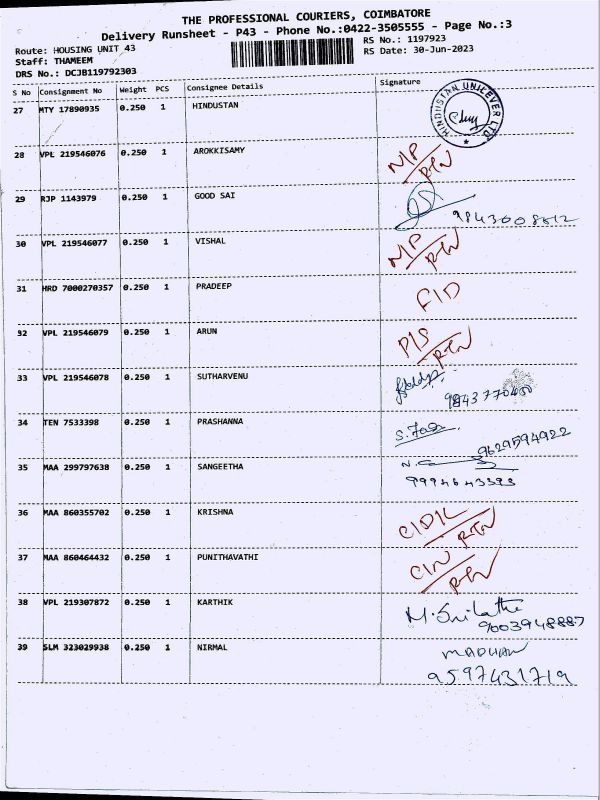 THE PROFESSIONAL COURIERS, COIMBATORE
Delivery Runsheet - P43 - Phone No.:0422-3505555 - Page No.:3
Route: HOUSING UNIT 43
RS No.: 1197923
Staff: THAMEEM
RS Date: 30-Jun-2023
DRS No.: DCJB119792303
S No Consignment No Weight PCS Consignee Details Signature
27 MTY 17890935 0.250 1 HINDUSTAN
HINDUSTAN UNILEVER LTD
28 VPL 219546076 0.250 1 AROKKISAMY N/P
RTN
29 RJP 1143979 0.250 1 GOOD SAI
30 VPL 219546077 0.250 1 VISHAL N/P
RTN
31 HRD 7000270357 0.250 1 PRADEEP F/D
32 VPL 219546079 0.250 1 ARUN P/S
RTN
33 VPL 219546078 0.250 1 SUTHARVENU
34 TEN 7533398 0.250 1 PRASHANNA
9629594922
35 MAA 299797638 0.250 1 SANGEETHA
9994643593
36 MAA 860355702 0.250 1 KRISHNA
RTN
37 MAA 860464432 0.250 1 PUNITHAVATHI C/N
RTN
38 VPL 219307872 0.250 1 KARTHIK M.Srilatha
9003948887
39 SLM 323029938 0.250 1 NIRMAL MADHAN
9597431719